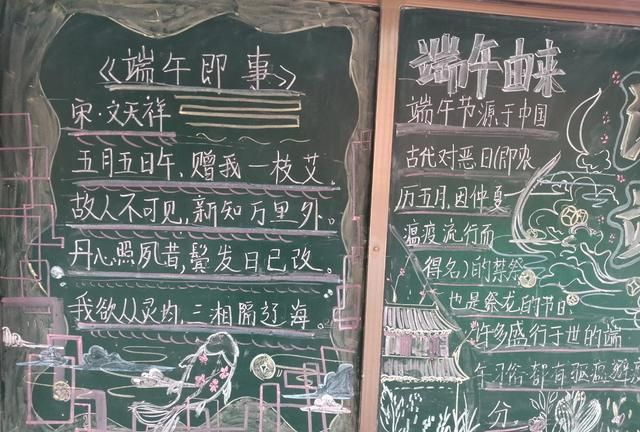 《端午即事》
宋·文天祥
五月五日午，赠我一枝艾。
故人不可见，新知万里外。
丹心照夙昔，鬓发日已改。
我欲从灵均，三湘隔辽海。
端午由来
端午节源于中国
古代对恶日(即农
历五月，因仲夏
瘟疫流行而
得名)的禁祭
也是祭龙的节日
许多盛行于世的端
午习俗都有驱瘟避
分。